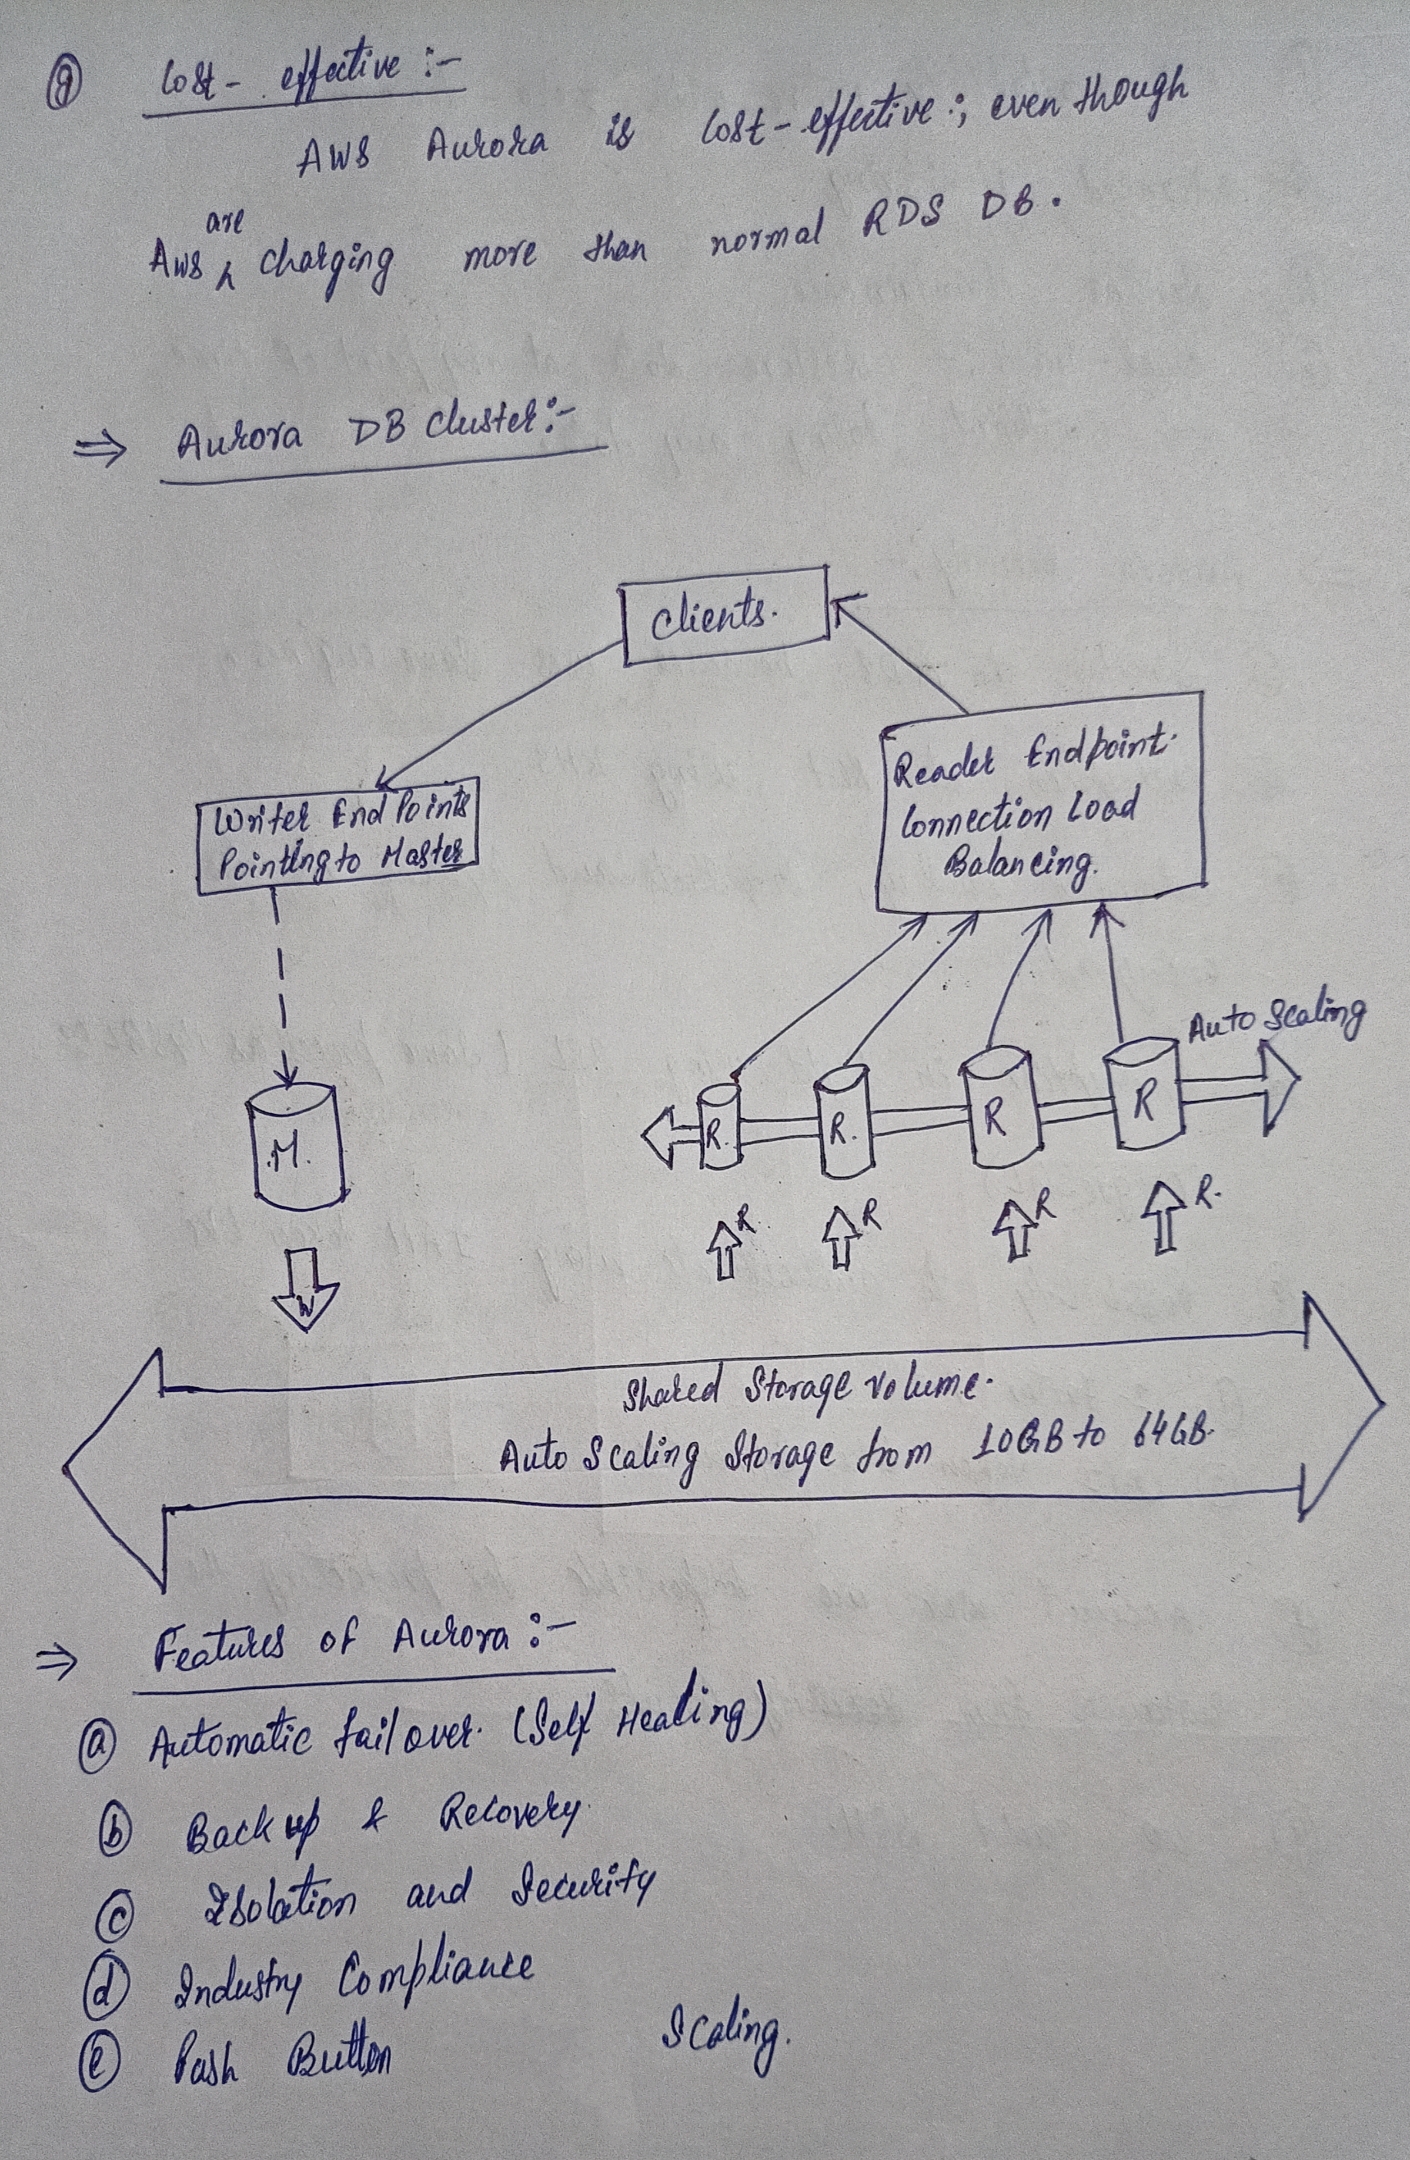 g Cost-effective :-
AWS Aurora is Cost-effective :, even though
are
AWS ʌ charging more than normal RDS DB.
⇒ Aurora DB Cluster:-
Clients.
Reader Endpoint.
Connection Load
Balancing.
Writer End Points
Pointing to Master
Auto Scaling
M. R. R. R R
R R R R.
W
Shared Storage Volume.
Auto Scaling Storage from 10GB to 64GB.
⇒ Features of Aurora :-
a Automatic failover. (Self Healing)
b Back up & Recovery.
c Isolation and Security
d Industry Compliance
e Push Button Scaling.